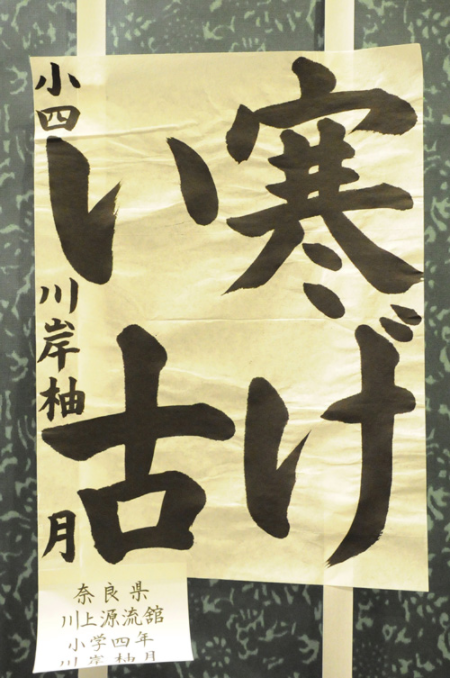 寒げ
い古
小四 川岸柚月
奈良県
川上源流舘
小学四年
川岸柚月